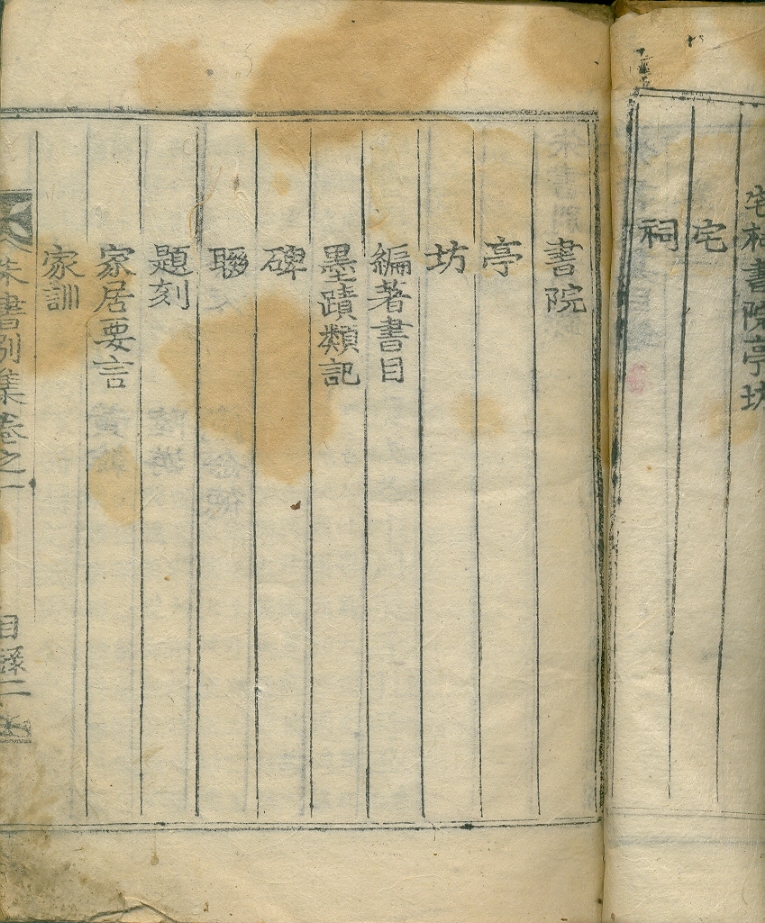 宅祠書院亭坊
宅
祠
書院
亭
坊
編著書目
墨蹟類記
碑
聯
題刻
家居要言
家訓
朱書別集卷之一
目録二